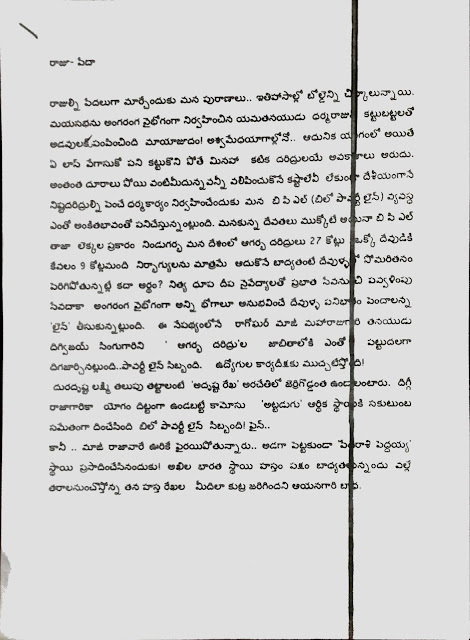 రాజు - పేదా
రాజుల్ని పేదలుగా మార్చేందుకు మన పురాణాలు.. ఇతిహాసాల్లో బోల్డెన్ని చిట్కాలున్నాయి.
మయసభను అంగరంగ వైభోగంగా నిర్వహించిన యమతనయుడు ధర్మరాజుని కట్టుబట్టలతో
అడవులకు పంపించింది మాయాజూదం! అశ్వమేధయాగాల్లోనో.. ఆధునిక యుగంలో అయితే
ఏ లాస్ వేగాసుకో పని కట్టుకొని పోతే మినహా కటిక దరిద్రులయే అవకాశాలు అరుదు.
అంతంత దూరాలు పోయి వంటిమీదున్నవన్నీ వలిపించుకొనే కష్టాలేవీ లేకుండా దేశీయంగానే
నిష్టదరిద్రుల్ని పెంచే ధర్మకార్యం నిర్వహించేందుకు మన బి పి ఎల్ (బిలో పావర్టీ లైన్) వ్యవస్థ
ఎంతో అంకితభావంతో పనిచేస్తున్నట్లుంది. మనకున్న దేవతలు ముక్కోటే అయినా బి పి ఎల్
తాజా లెక్కల ప్రకారం నిండుగర్భ మన దేశంలో ఆగర్భ దరిద్రులు 27 కోట్లు. ఒక్కో దేవుడికి
కేవలం 9 కోట్లమంది నిర్భాగ్యులను మాత్రమే ఆదుకొనే బాధ్యతంటే దేవుళ్ళలో సోమరితనం
పెరిగిపోతున్నట్లే కదా అర్థం? నిత్య ధూప దీప నైవేద్యాలతో ప్రభాత సేవనుంచి పవ్వళింపు
సేవదాకా అంగరంగ వైభోగంగా అన్ని భోగాలూ అనుభవించే దేవుళ్ళ పనిభారం పెంచాలన్న
'లైన్' తీసుకున్నట్లుంది. ఈ నేపథ్యంలోనే రాగోఘర్ మాజీ మహారాజాగారి తనయుడు
దిగ్విజయ్ సింగుగారిని ' ఆగర్భ దరిద్రు'ల జాబితాలోకి ఎంతో పట్టుదలగా
దిగజార్చినట్లుంది..పావర్టీ లైన్ సిబ్బంది. ఉద్యోగుల కార్యదీక్షకు ముచ్చటేస్తోంది!
దురదృష్ట లక్ష్మి తలుపు తట్టాలంటే 'అదృష్ట రేఖ' అరచేతిలో జెర్రిగొడ్డంత ఉండాలంటారు. దిగ్గీ
రాజాగారికా యోగం దిట్టంగా ఉండబట్టే కామోసు 'అట్టడుగు' ఆర్థిక స్థాయికి సకుటుంబ
సమేతంగా దించేసింది బిలో పావర్టీ లైన్ సిబ్బంది! ఫైన్..
కానీ .. మాజీ రాజావారే ఊరికే ఫైరయిపోతున్నారు.. అడగా పెట్టకుండా 'పేదరాశి పెద్దయ్య'
స్థాయి ప్రసాదించేసినందుకు! అఖిల భారత స్థాయి హస్తం పక్షం బాధ్యతలున్నందు వల్లే
తరాలనుంచొస్తోన్న తన హస్త రేఖల మీదిలా కుట్ర జరిగిందని ఆయనగారి బాధ.